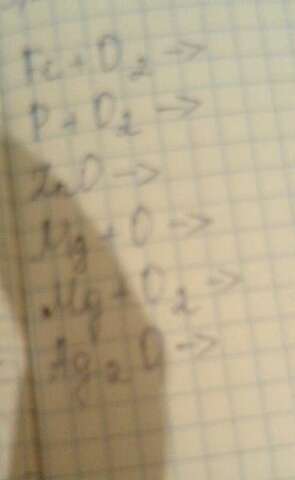 Fe + O₂ →
P + O₂ →
ZnO →
Mg + O →
Mg + O₂ →
Ag₂O →